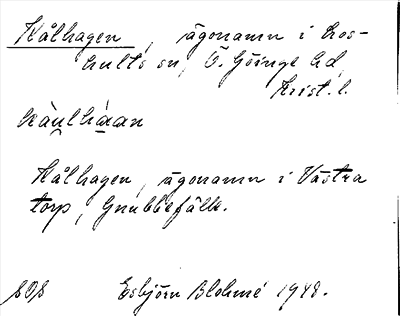 Kålhagen, ägonamn i Los-
hults sn, Ö. Göinge hd,
Krist. l.
Kålhagen, ägonamn i Västra
torp, Gnubbefälle.
SOS Esbjörn Blohmé 1948.